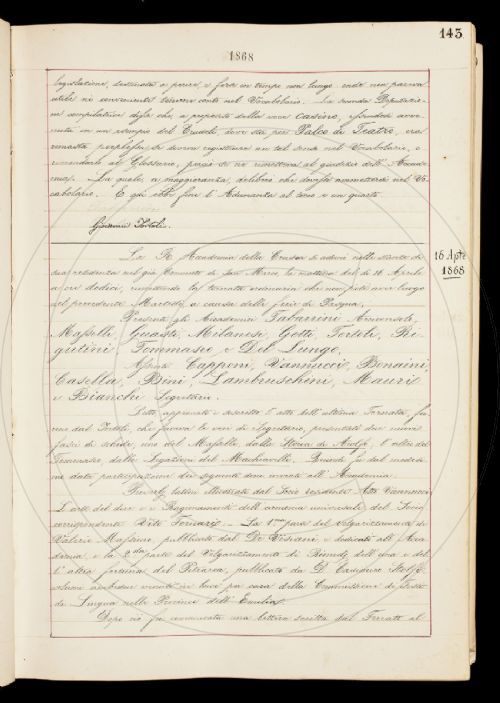 143
1868
legislazione, destinata a perire, e forse in tempo non lungo, onde non pareva
utile nè conveniente tenerne conto nel Vocabolario. La seconda Deputazio-
ne compilatrice disse che, a proposito della voce Casino,
in un esempio del dove sta per Palco di Teatro, era
rimasta perplessa se doveva registrare un tal senso nel Vocabolario, o
rimandarlo al Glossario, perciò se ne rimetteva al giudizio dell'Accade-
mia. La quale, a maggioranza, deliberò che dovesse ammettersi nel Vo-
cabolario. E qui ebbe fine l'Adunanza al tocco e un quarto.
Giovanni Tortoli.
16 Apr.e
1868
La R. Accademia della Crusca si adunò nelle stanze di
sua residenza nel già Convento di San Marco, la mattina del dì 16 Aprile
a ore dodici, la tornata ordinaria che non potè aver luogo
nel precedente Martedì a causa delle ferie di Pasqua.
Presenti gli Accademici Tabarrini Arciconsolo,
Maffei, Guasti, Milanesi, Gotti, Tortoli, Ri-
gutini, Tommasi e Del Lungo.
Assenti Capponi, Vannucci, Bonaini,
Casella, Bini, Lambruschini, Mauri
e Bianchi Segretario.
Letto, approvato e sottoscritto l'atto dell'ultima Tornata, fu-
rono dal Tortoli, che faceva le veci di Segretario, presentati due nuovi
fasci di schede, uno del Maffei dalla Storia di Aiolfo, l'altro del
Tommasi, dalle Legazioni del Machiavelli. Quindi fu dal medesi-
mo data partecipazione dei seguenti doni inviati all'Accademia.
Tre lettere illustrate dal Socio residente Atto Vannucci
L'arte del dire e i Ragionamenti dell'armonia universale, del Socio
corrispondente Vito Fornari. La 1.ma parte del Volgarizzamento di
Valerio Massimo, pubblicata dal Dr. Visiani e dedicata all'Acca-
demia, e la 2.da parte del Volgarizzamento dei Rimedj dell'una e del-
l'altra fortuna del Petrarca, pubblicata da D. Casimiro Stolfi,
volumi ambedue venuti in luce per cura della Commissione de' Testi
di Lingua nelle Provincie dell'Emilia.
Dopo ciò fu comunicata una lettera scritta dal Ferrato al